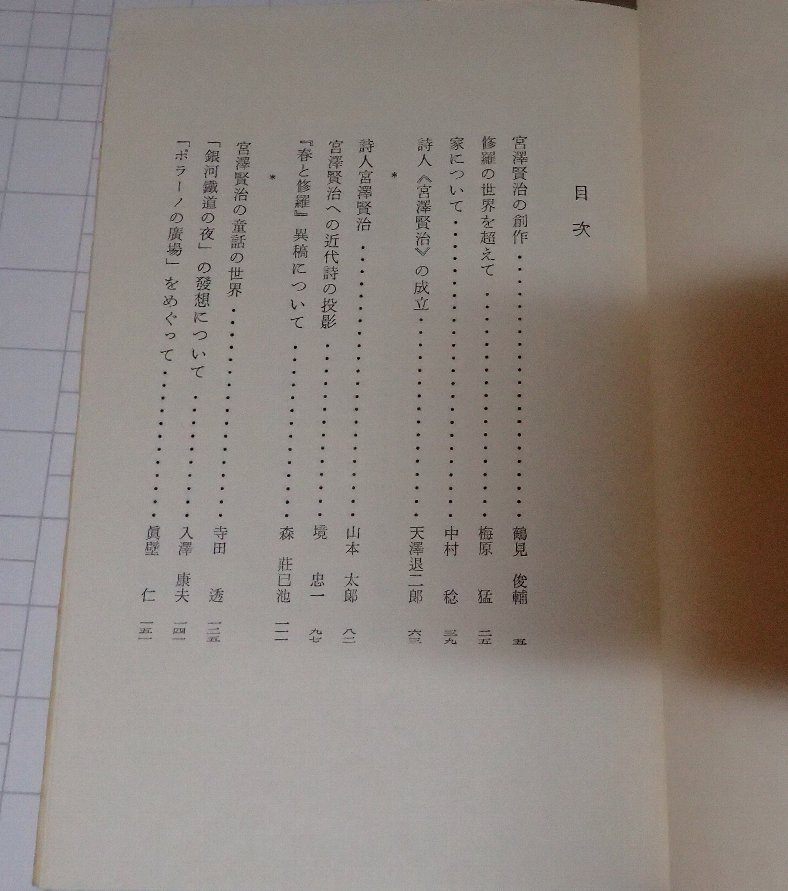 目次
宮澤賢治の創作・・・・・・・・・・・・・・・・・・・・鶴見 俊輔 五
修羅の世界を超えて・・・・・・・・・・・・・・・・・・梅原 猛 二五
家について・・・・・・・・・・・・・・・・・・・・・・・中村 稔 三九
詩人《宮澤賢治》の成立・・・・・・・・・・・・・・・・天澤退二郎 六三
*
詩人宮澤賢治・・・・・・・・・・・・・・・・・・・・・山本 太郎 八二
宮澤賢治への近代詩の投影・・・・・・・・・・・・・・境 忠一 九七
『春と修羅』異稿について・・・・・・・・・・・・・・森 莊已池 一一一
*
宮澤賢治の童話の世界・・・・・・・・・・・・・・・・寺田 透 一二五
「銀河鐵道の夜」の發想について・・・・・・・・・・入澤 康夫 一四一
「ポラーノの廣場」をめぐって・・・・・・・・・・・・眞壁 仁 一五一